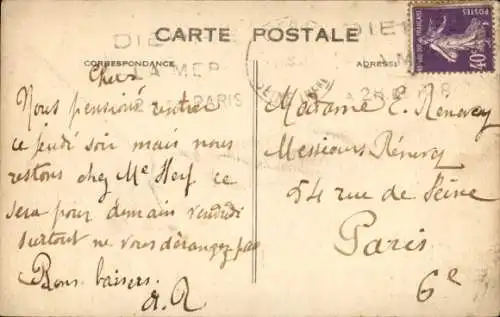 CARTE POSTALE
CORRESPONDANCE
ADRESSE
POSTES
40c
DIE
LA MER
PARIS
Chers
Nous pensions rentrer
ce jeudi soir mais nous
restons chez Me ce
sera pour demain vendredi
surtout ne vous dérangez pas
Bons baisers.
A. R
Madame E. Renevey
Messieurs Rénevey
54 rue de Seine
Paris
6e